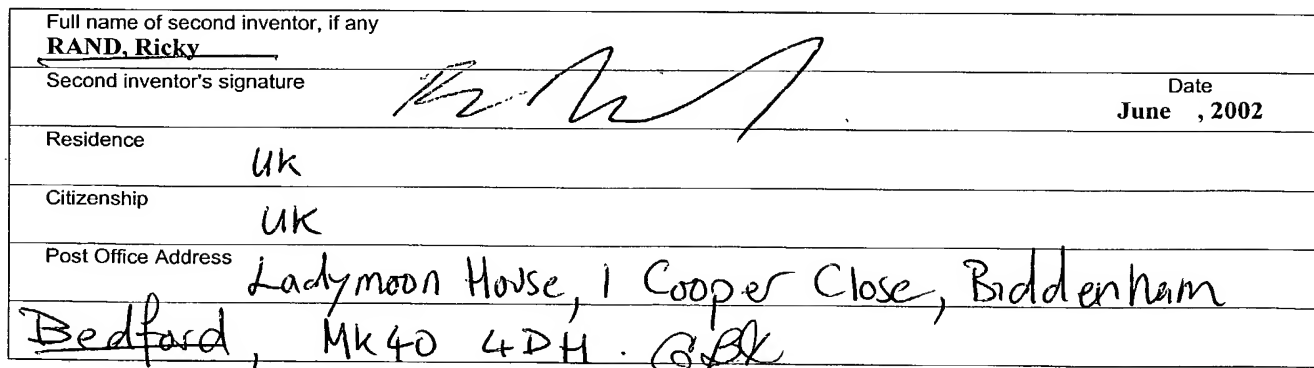 Full name of second inventor, if any
RAND, Ricky
Second inventor's signature
Date
June , 2002
Residence
UK
Citizenship
UK
Post Office Address
Ladymoon House, 1 Cooper Close, Biddenham
Bedford, MK40 4DH.